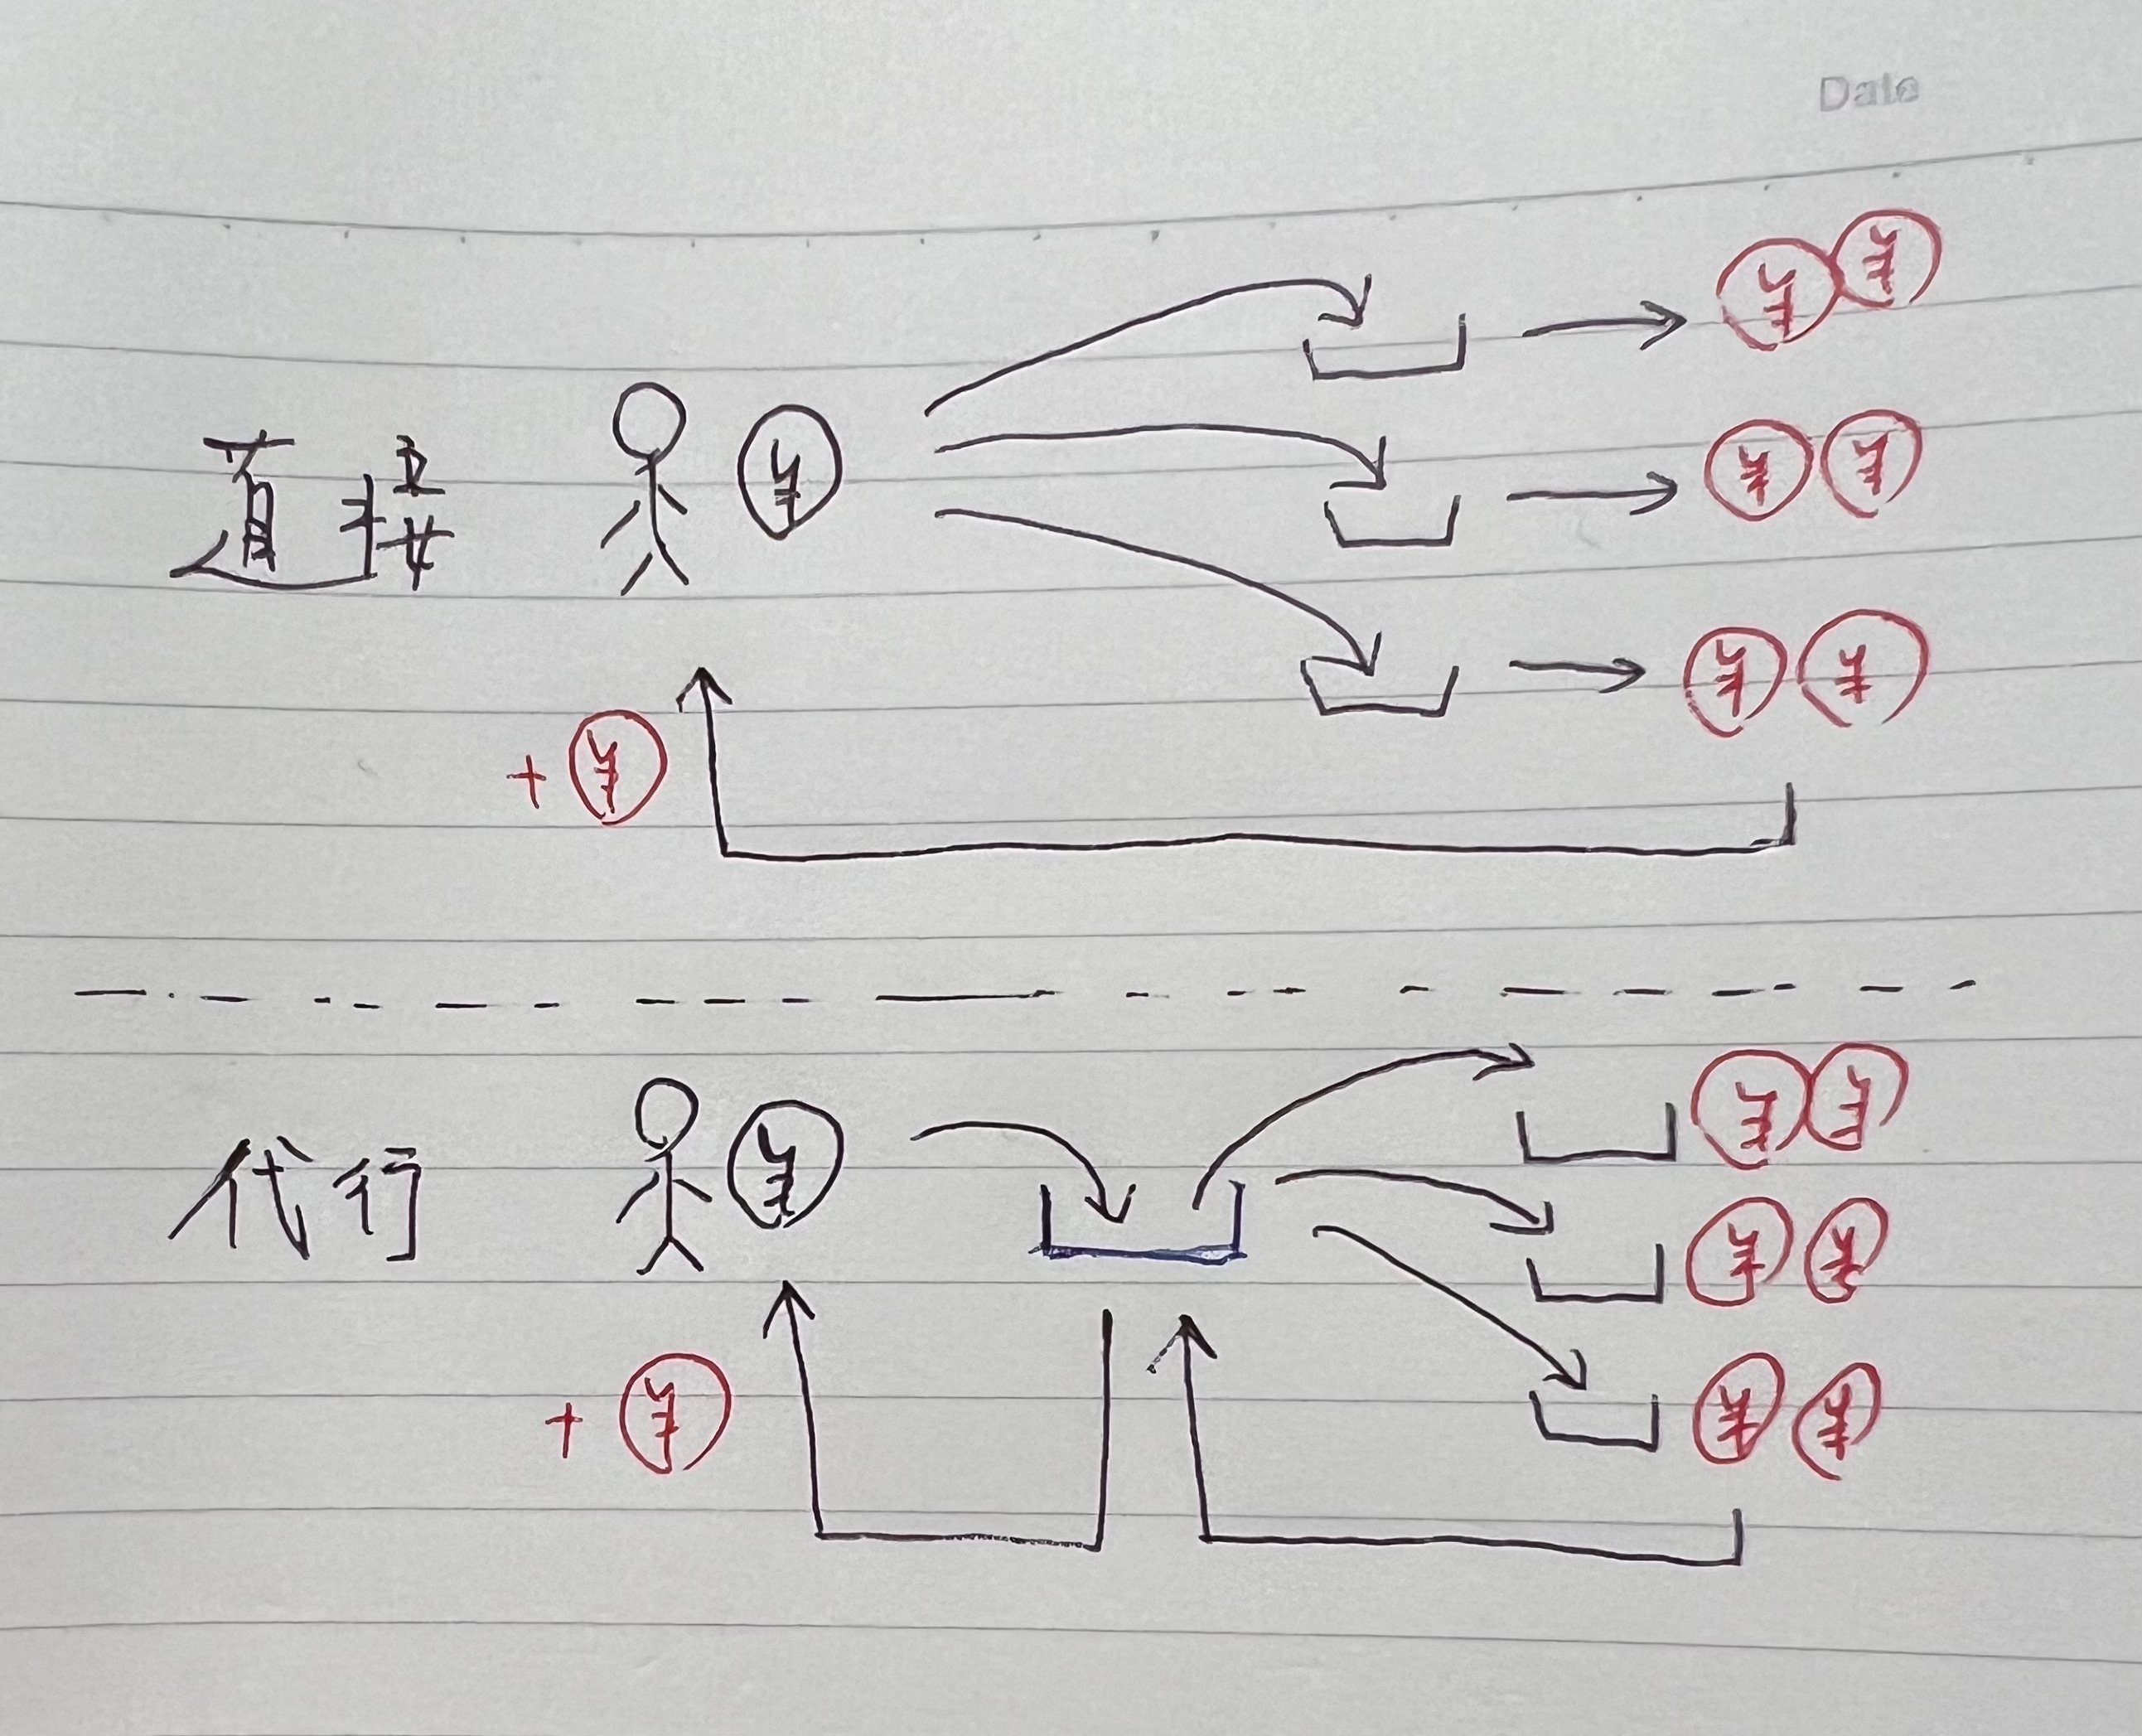 Date
¥ ¥
直接 ¥
¥ ¥
¥ ¥
+ ¥
¥ ¥
代行 ¥
¥ ¥
¥ ¥
+ ¥